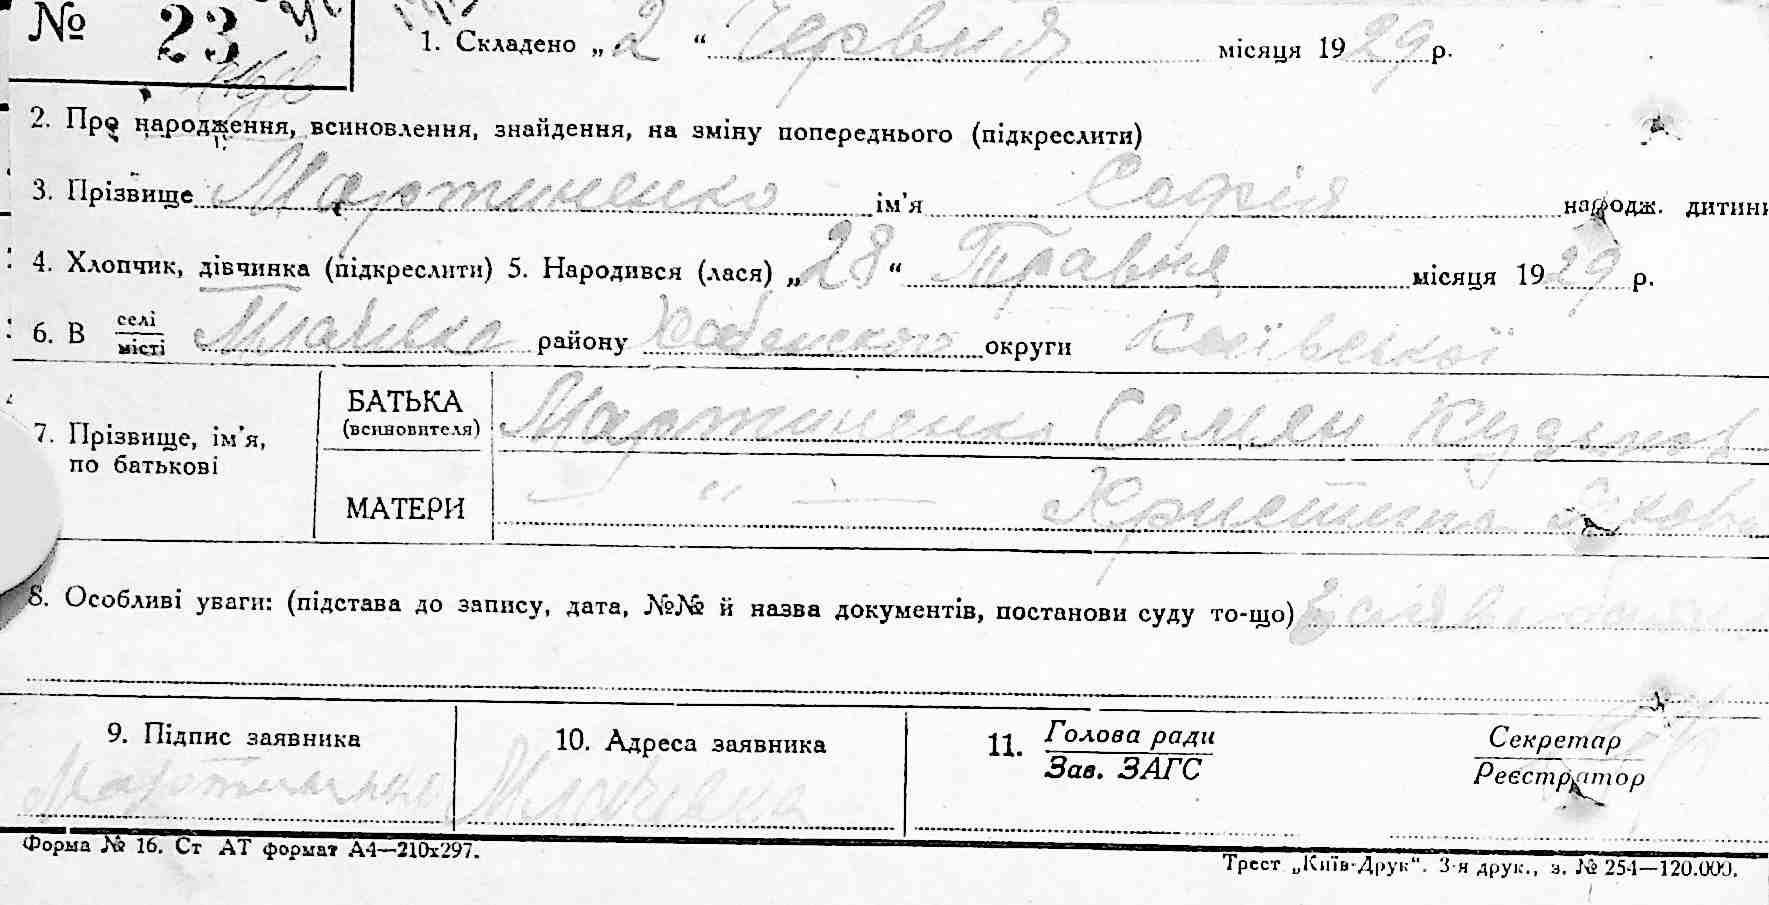 № 23
1. Складено „ 2 “ Червня місяця 1929 р.
2. Про народження, всиновлення, знайдення, на зміну попереднього (підкреслити)
3. Прізвище Мартиненко ім’я Софія народж. дитини
4. Хлопчик, дівчинка (підкреслити) 5. Народився (лася) „ 28 “ Травня місяця 1929 р.
6. В селі/місті району Хабенского округи Київської
7. Прізвище, ім’я, по батькові
БАТЬКА (всиновителя) Мартиненко Семен Кузьмов
МАТЕРИ — „ — Христина
8. Особливі уваги: (підстава до запису, дата, №№ й назва документів, постанови суду то-що)
9. Підпис заявника
10. Адреса заявника
11. Голова ради Секретар
Зав. ЗАГС Реєстратор
Форма № 16. Ст АТ формат А4—210х297.
Трест „Київ-Друк“. 3-я друк., з. № 254—120.000.